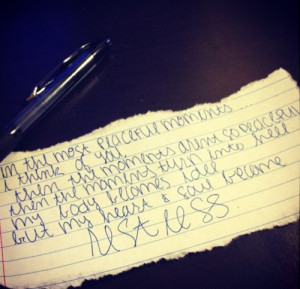 in the most peaceful moments ....
I think of you
then the moments arent so peaceful
then the moments turn into hell
my body becomes idle
but my heart & soul become